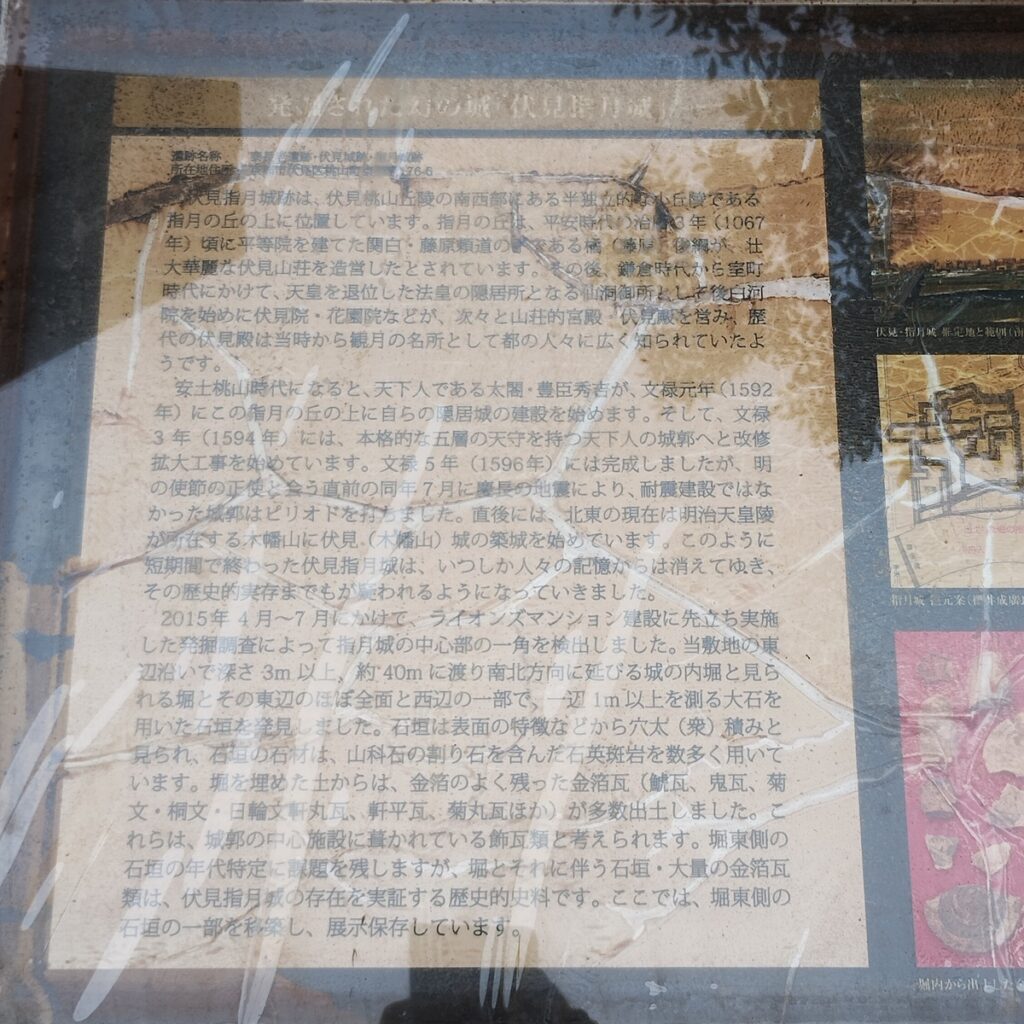 発掘された石の城 伏見指月城
遺跡名称 伏見城跡
所在地住所 伏見区桃山町 176-6
伏見指月城跡は、伏見桃山丘陵の南西部にある半独立的な小丘陵である
指月の丘の上に位置しています。指月の丘は、平安時代の治暦3年（1067
年）頃に平等院を建てた関白・藤原頼道の子である橘（藤原）俊綱が、壮
大華麗な伏見山荘を造営したとされています。その後、鎌倉時代から室町
時代にかけて、天皇を退位した法皇の隠居所となる仙洞御所として後白河
院を始めに伏見院・花園院などが、次々と山荘的宮殿・伏見殿を営み、歴
代の伏見殿は当時から観月の名所として都の人々に広く知られていたよ
うです。
安土桃山時代になると、天下人である太閤・豊臣秀吉が、文禄元年（1592
年）にこの指月の丘の上に自らの隠居城の建設を始めます。そして、文禄
3年（1594年）には、本格的な五層の天守を持つ天下人の城郭へと改修
拡大工事を始めています。文禄5年（1596年）には完成しましたが、明
の使節の正使と会う直前の同年7月に慶長の地震により、耐震建設ではな
かった城郭はピリオドを打ちました。直後には、北東の現在は明治天皇陵
が所在する木幡山に伏見（木幡山）城の築城を始めています。このように
短期間で終わった伏見指月城は、いつしか人々の記憶からは消えてゆき、
その歴史的実存までもが疑われるようになっていきました。
2015年4月～7月にかけて、ライオンズマンション建設に先立ち実施
した発掘調査によって指月城の中心部の一角を検出しました。当敷地の東
辺沿いで深さ3m以上、約40mに渡り南北方向に延びる城の内堀と見ら
れる堀とその東辺のほぼ全面と西辺の一部で、一辺1m以上を測る大石を
用いた石垣を発見しました。石垣は表面の特徴などから穴太（衆）積みと
見られ、石垣の石材は、山科石の割り石を含んだ石英斑岩を数多く用いて
います。堀を埋めた土からは、金箔のよく残った金箔瓦（鯱瓦、鬼瓦、菊
文・桐文・日輪文軒丸瓦、軒平瓦、菊丸瓦ほか）が多数出土しました。こ
れらは、城郭の中心施設に葺かれている飾瓦類と考えられます。堀東側の
石垣の年代特定に課題を残しますが、堀とそれに伴う石垣・大量の金箔瓦
類は、伏見指月城の存在を実証する歴史的史料です。ここでは、堀東側の
石垣の一部を移築し、展示保存しています。
伏見・指月城 推定地と範囲（南
指月城 復元案（
堀内から出土した